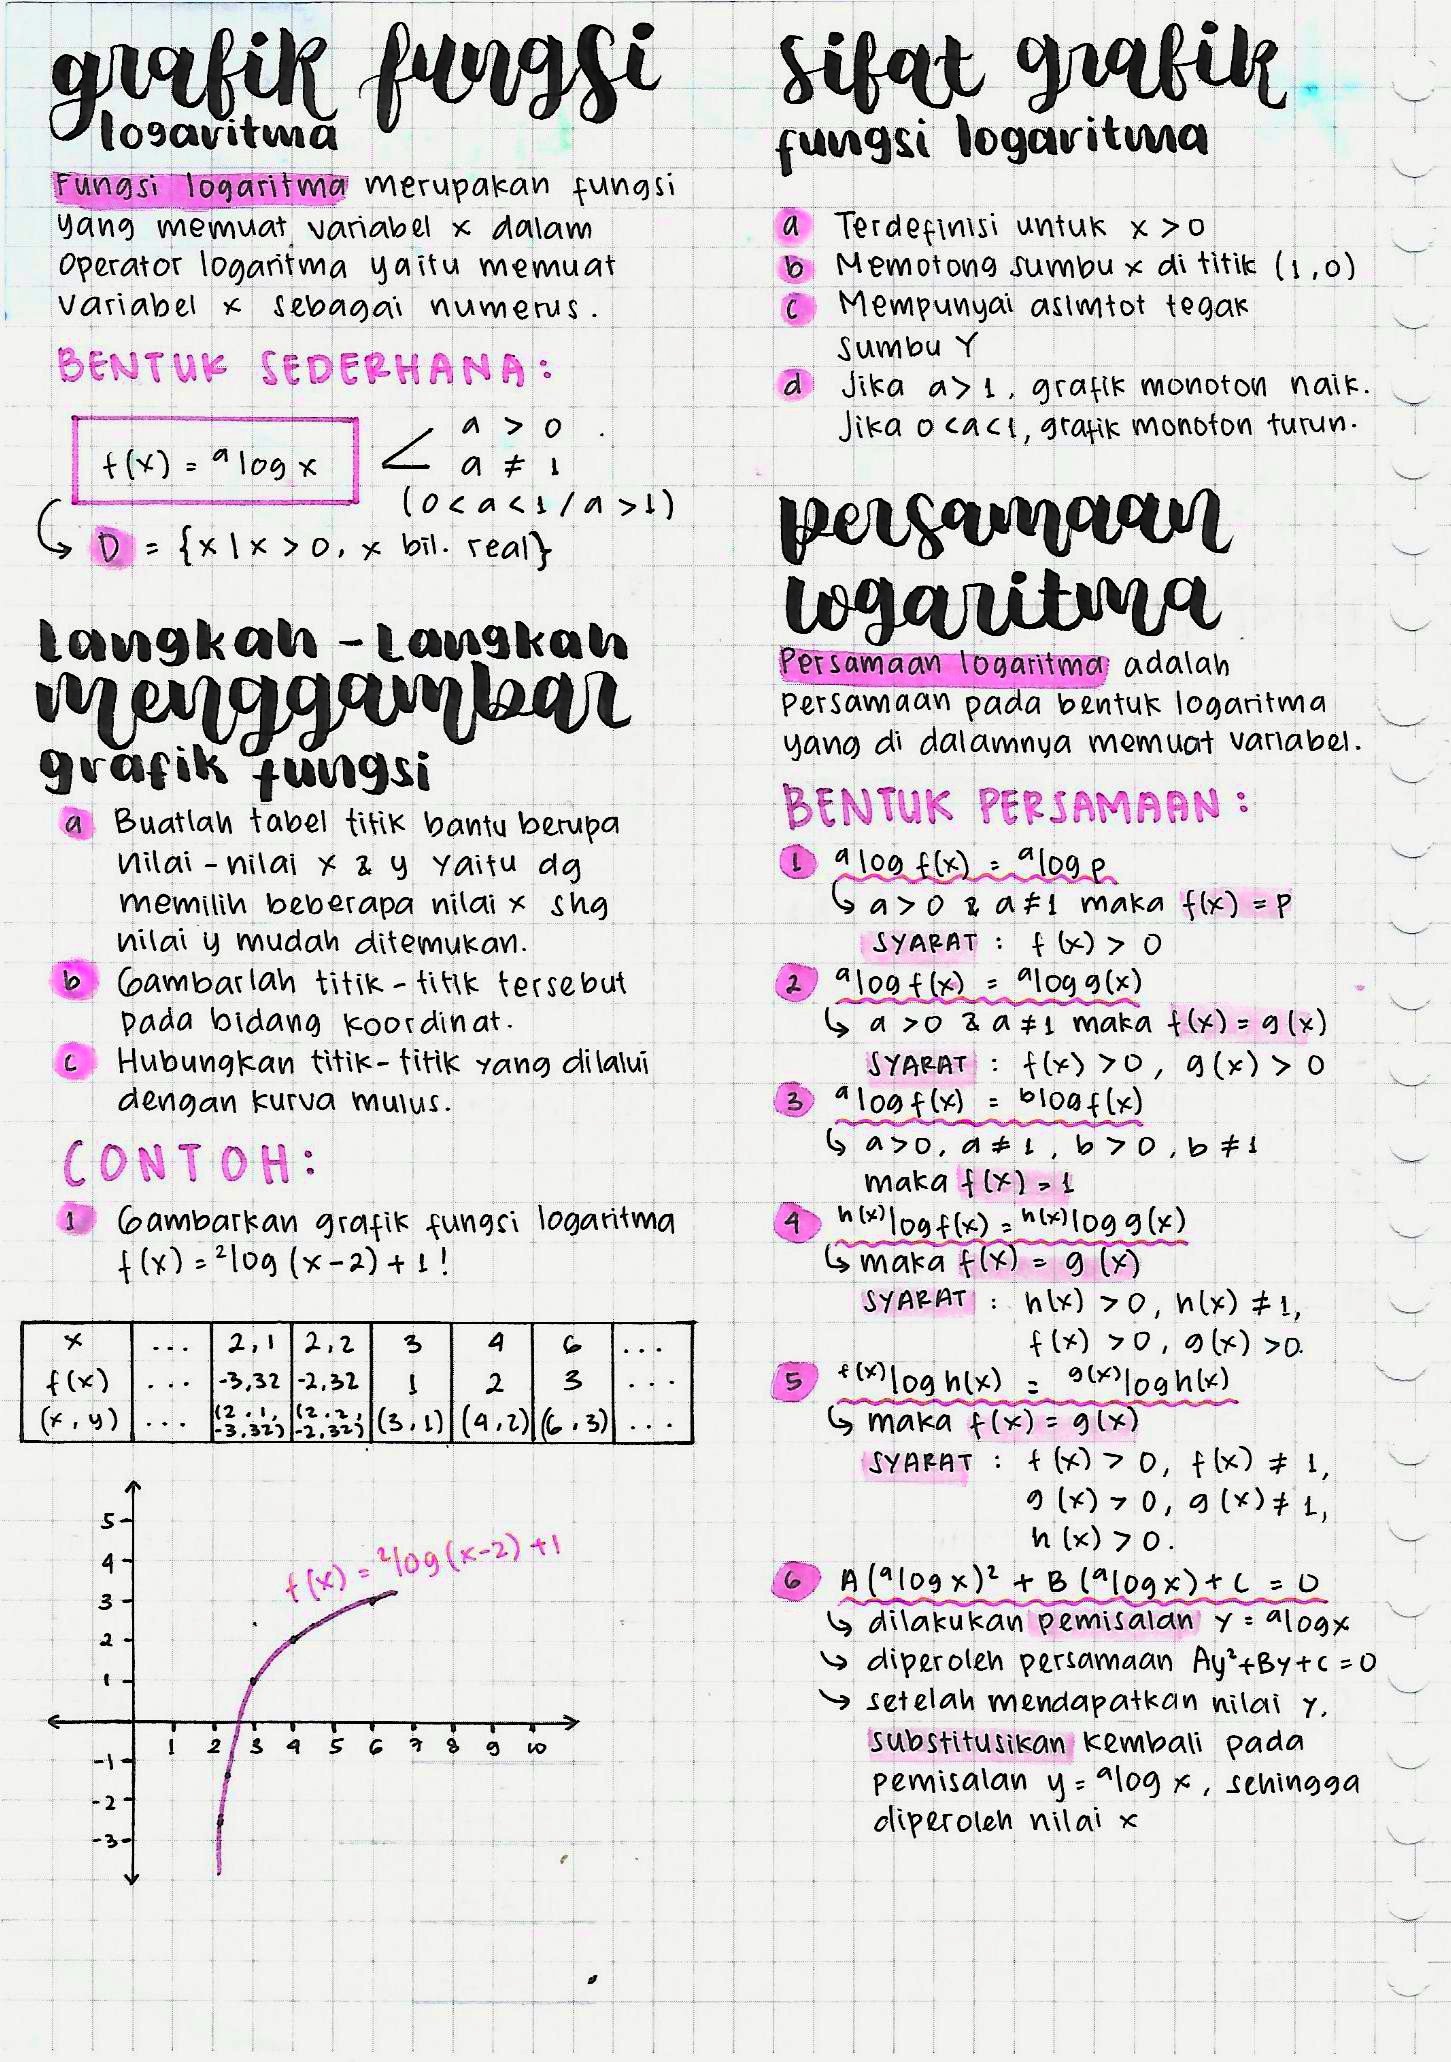 grafik fungsi
logaritma
Fungsi logaritma merupakan fungsi
yang memuat variabel x dalam
operator logaritma yaitu memuat
variabel x sebagai numerus.
BENTUK SEDERHANA:
f(x) = ᵃlog x
a > 0
a ≠ 1
(0<a<1/a>1)
D = {x|x>0, x bil. real}
Langkah-Langkah
menggambar
grafik fungsi
a Buatlah tabel titik bantu berupa
nilai-nilai x & y yaitu dg
memilih beberapa nilai x shg
nilai y mudah ditemukan.
b Gambarlah titik-titik tersebut
pada bidang koordinat.
c Hubungkan titik-titik yang dilalui
dengan kurva mulus.
CONTOH:
1 Gambarkan grafik fungsi logaritma
f(x) = ²log (x-2) + 1!
x ... 2,1 2,2 3 4 6 ...
f(x) ... -3,32 -2,32 1 2 3 ...
(x,y) ... (2.1, -3,32) (2.2, -2,32) (3,1) (4,2) (6,3) ...
f(x) = ²log(x-2)+1
5
4
3
2
1
1 2 3 4 5 6 7 8 9 10
-1
-2
-3
sifat grafik
fungsi logaritma
a Terdefinisi untuk x > 0
b Memotong sumbu x di titik (1,0)
c Mempunyai asimtot tegak
sumbu Y
d Jika a>1, grafik monoton naik.
Jika 0<a<1, grafik monoton turun.
persamaan
logaritma
Persamaan logaritma adalah
persamaan pada bentuk logaritma
yang di dalamnya memuat variabel.
BENTUK PERSAMAAN:
1 ᵃlog f(x) = ᵃlog p
↳ a>0 & a≠1 maka f(x) = p
SYARAT : f(x) > 0
2 ᵃlog f(x) = ᵃlog g(x)
↳ a>0 & a≠1 maka f(x) = g(x)
SYARAT : f(x) >0, g(x) > 0
3 ᵃlog f(x) = ᵇlog f(x)
↳ a>0, a≠1, b>0, b≠1
maka f(x) = 1
4 ʰ⁽ˣ⁾log f(x) = ʰ⁽ˣ⁾log g(x)
↳ maka f(x) = g(x)
SYARAT : h(x) >0, h(x) ≠1,
f(x) >0, g(x) >0.
5 ᶠ⁽ˣ⁾log h(x) = ᵍ⁽ˣ⁾log h(x)
↳ maka f(x) = g(x)
SYARAT : f(x) > 0, f(x) ≠ 1,
g(x) > 0, g(x) ≠ 1,
h(x) > 0.
6 A(ᵃlog x)² + B(ᵃlog x) + C = 0
↳ dilakukan pemisalan y = ᵃlog x
↳ diperoleh persamaan Ay²+By+C=0
↳ setelah mendapatkan nilai y,
substitusikan kembali pada
pemisalan y = ᵃlog x, sehingga
diperoleh nilai x